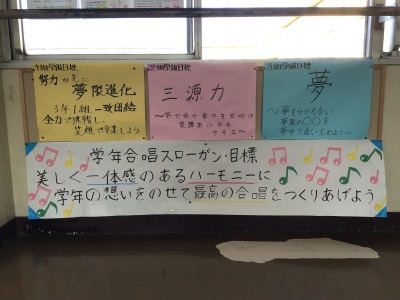 1組学級目標
努力の先に
夢限進化
3年1組一致団結
全力で挑戦し、
笑顔で卒業しよう
2組学級目標
三源力
3組学級目標
夢
〜夢を分かち合い
夢見の〇〇を
夢中で追い求めよう〜
学年合唱スローガン・目標
美しく一体感のあるハーモニーに
学年の想いをのせて最高の合唱をつくりあげよう